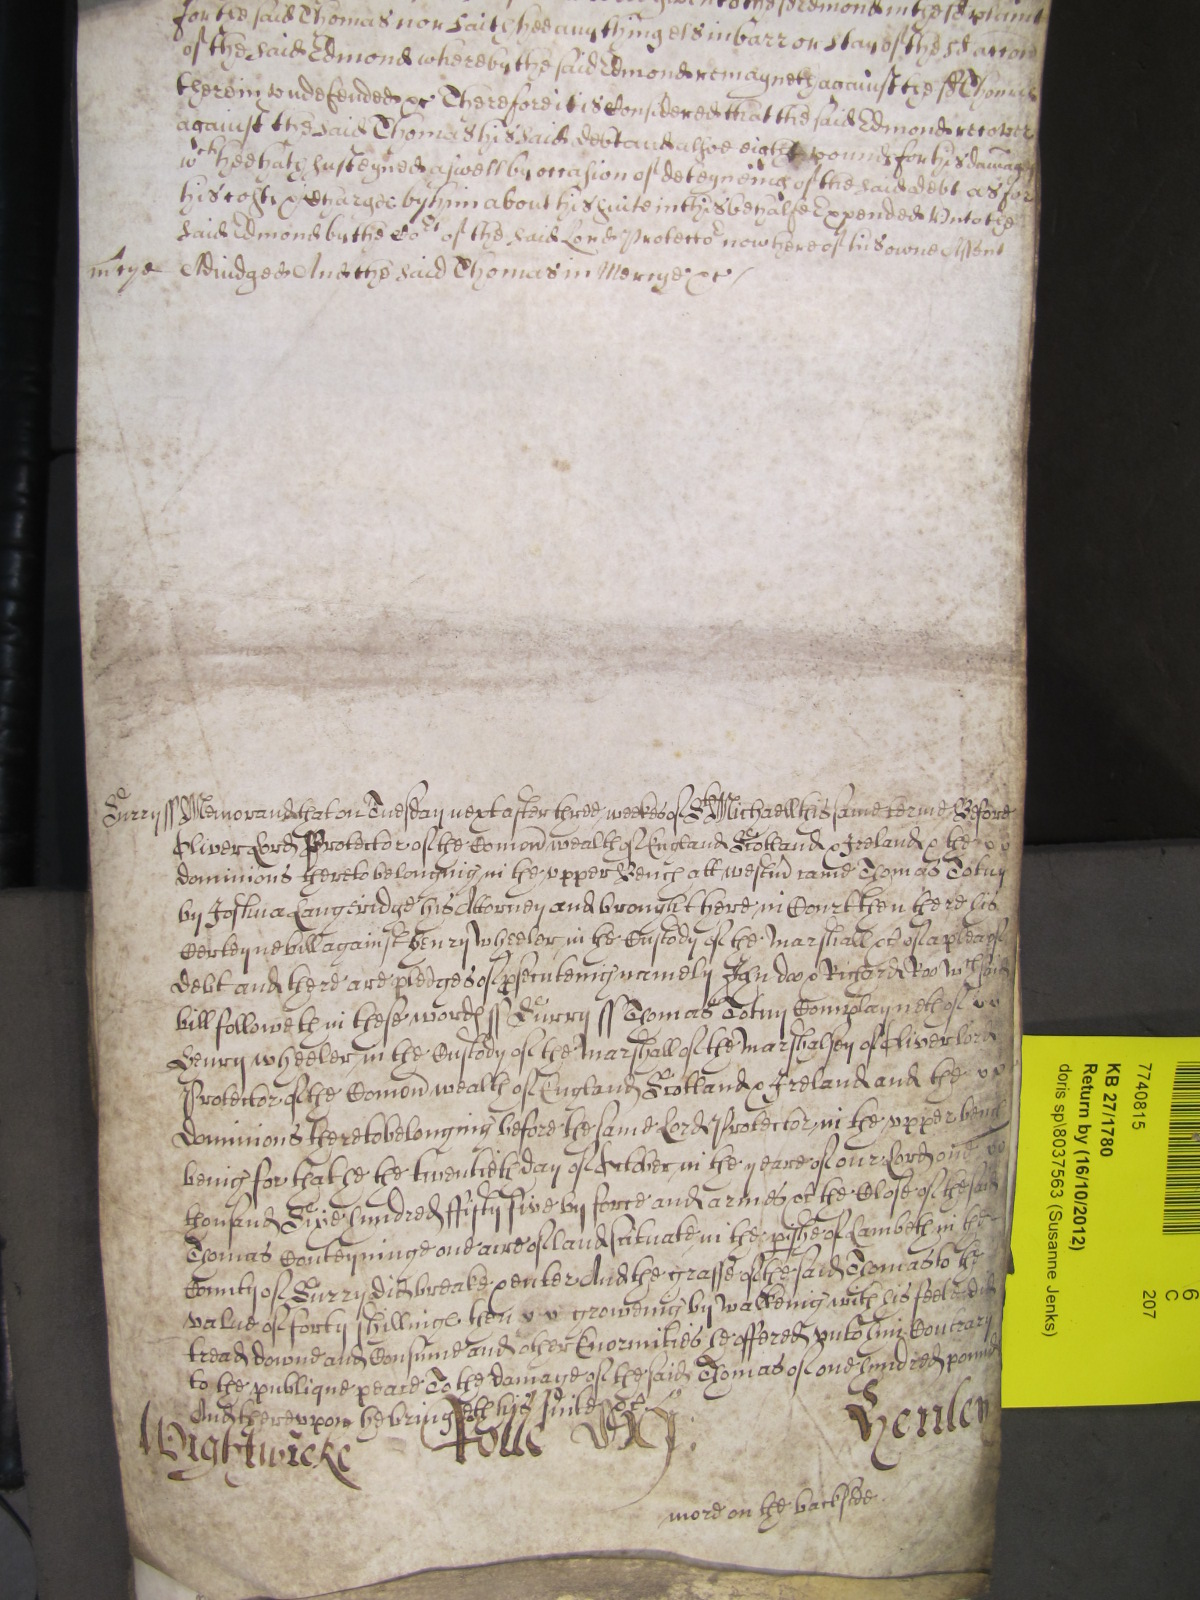 for the said Thomas nor saith hee any thing els in barr or stay of the sd accon
of the said Edmond whereby the said Edmond remayneth against the sd Thomas
therein vndefended &c Therefore it is Considered that the said Edmond recover
against the said Thomas his said debt and alsoe eight pounds for his damages
wch hee hath susteyned aswell by occasion of deteyneing of the said debt as for
his costs & charges by him about his suite in this behalfe Expended Vnto the
said Edmond by the Cort of the said Lord Protector now here of his owne Assent
mrcye Adiudged And the said Thomas in Mercye &c
Surry ss Memorand that on Tuesday next after three weekes of St Michaell this same terme Before
Oliver Lord Protector of the Comon wealth of England Scotland & Ireland & the
dominions thereto belonging in the vpper Bench att Westm came Thomas Totny
by Joshua Langridge his Attorney and brought here in Court then there his
Certeyne bill against Henry Wheeler in the Custody of the Marshall &c of a plea of
debt and there are pledges of psecuteing namely John doo & Richard Roo wch said
bill followeth in these words ss Surry ss Thomas Totny Complayneth of
Henry Wheeler in the Custody of the Marshall of the Marshalsey of Oliver Lord
Protector of the Comon wealth of England Scotland & Ireland and the
Dominions thereto belonging before the same Lord Protector in the vpper bench
being for that he the twentieth day of October in the yeare of our Lord one
thousand Sixe hundred ffifty five by force and armes &c the Close of the said
Thomas Conteyninge one acre of land scituate in the pishe of Lambeth in the
County of Surry did breake & enter And the grasse of the said Thomas to the
value of forty shillings then growing by walkeing with his feete did
tread downe and Consume and other Enormities he offered vnto him Contrary
to the publique peace To the damage of the said Thomas of one hundred pounds
And therevpon he bringeth his suite &c
Wightwicke Rolle Henley
more on the backside
7740815
KB 27/1780
Return by (16/10/2012)
doris sp\8037563 (Susanne Jenks)
6
C
207